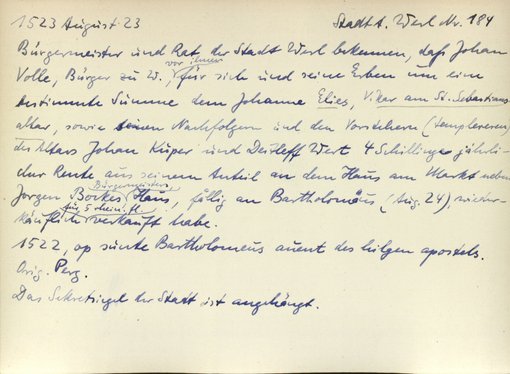 1523 August 23 Stadt A. Werl Nr. 184
Bürgermeister und Rat der Stadt Werl bekennen, daß Johan
Volle, Bürger zu W., vor ihnen für sich und seine Erben um eine
bestimmte Summe dem Johanne Elies, Vikar am St. Sebastians
altar, sowie seinen Nachfolgern und den Vorstehern (templeren)
des Altars Johan Küper und Detleff Wert 4 Schillinge jährli-
cher Rente aus seinem Anteil an dem Haus am Markt neben
Jorgen Bürgermeisters Bockes Haus, fällig an Bartholomäus (Aug. 24), wieder-
käuflich für 5 verkauft habe.
1522, op sünte Bartholomeus auent des hilgen apostels.
Orig. Perg.
Das Sekretsiegel der Stadt ist angehängt.